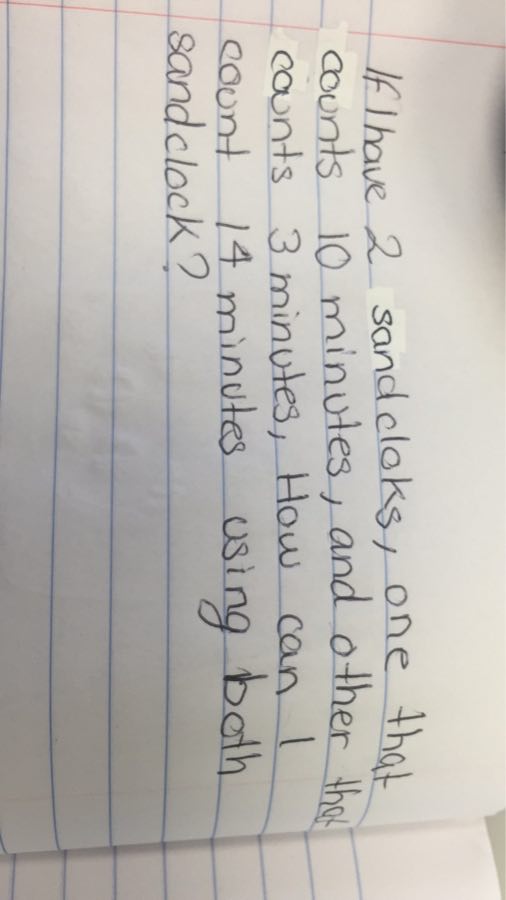 If I have 2 sandcloks, one that
counts 10 minutes, and other that
counts 3 minutes, How can I
count 14 minutes using both
sandclock?